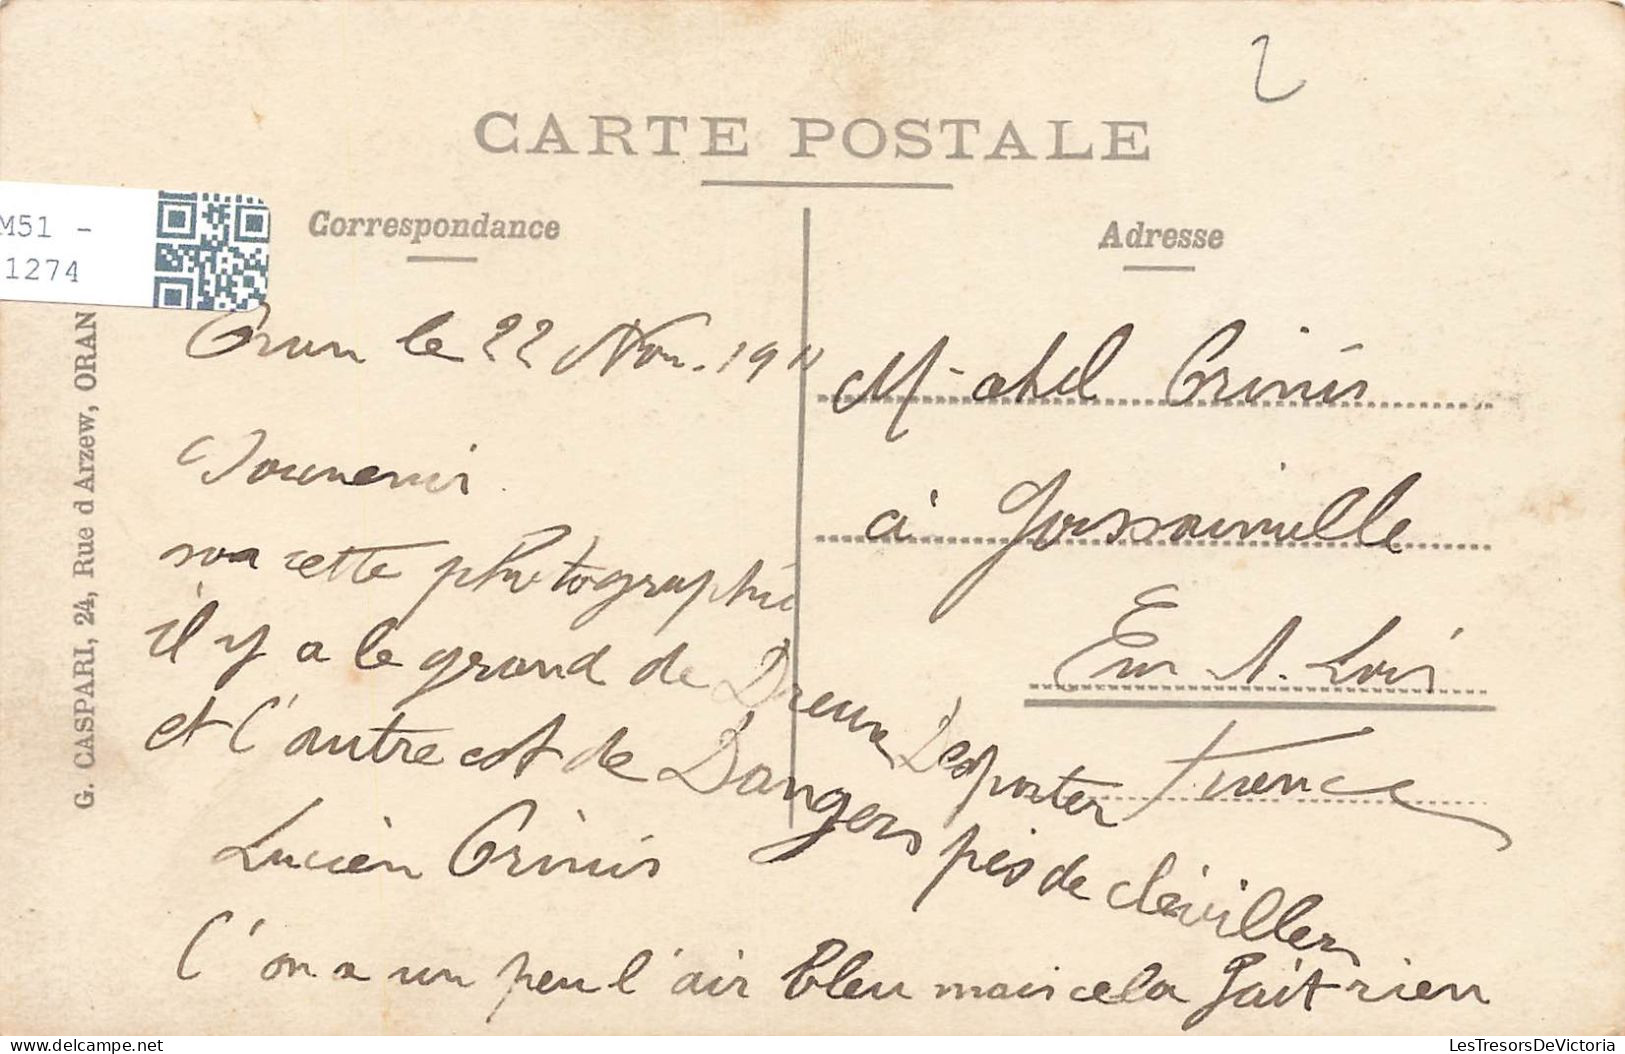 2
CARTE POSTALE
M51 -
1274
Correspondance
Adresse
G. CASPARI, 24, Rue d Arzew, ORAN
Oran le 22 Nov. 1911
Souvenir
sur cette photographie
il y a le grand de Dreux Desporter
et l'autre est de Dangers près de clévillers
Lucien Crinis
l'on a un peu l'air bleu mais cela fait rien
M. Abel Crinis
à Goussainville
Eur. L. Loir
France
LesTresorsDeVictoria.com